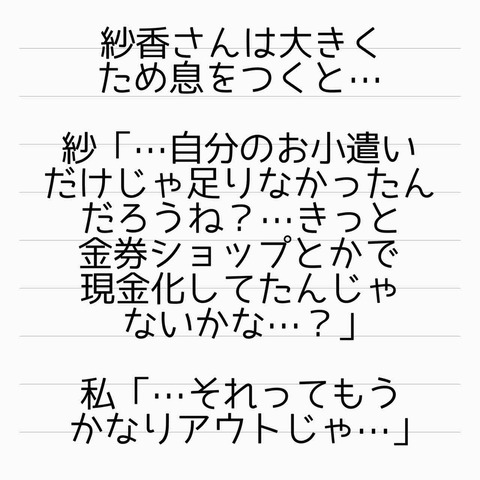 紗香さんは大きく
ため息をつくと…
紗「…自分のお小遣い
だけじゃ足りなかったん
だろうね？…きっと
金券ショップとかで
現金化してたんじゃ
ないかな…？」
私「…それってもう
かなりアウトじゃ…」